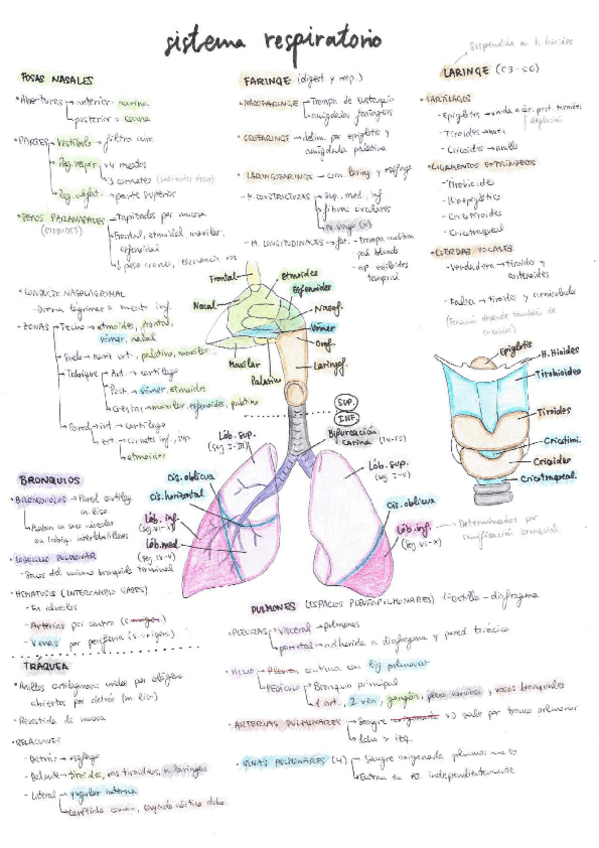 sistema respiratorio
FOSAS NASALES
• Aberturas → anterior: narina
→ posterior: coana
• PARTES → Vestíbulo → filtro aire
→ Reg. respir. → 4 meatos
→ 3 cornetes
→ Reg. olfat. → parte superior
• SENOS PARANASALES → Tapizados por mucosa
→ Frontal, etmoidal, maxilar,
esfenoidal
→ ↓ peso cráneo,
• CONDUCTO NASOLAGRIMAL
- Drena lágrimas a meato inf.
• ZONAS → Techo → etmoides, frontal,
vómer, nasal
→ Suelo → palatino, maxilar
→ Tabique → Ant. → cartílago
→ Post. → vómer, etmoides
→ Crestas → maxilar, esfenoides, palatino
→ Pared → int → cartílago
→ ext → cornete inf, sup
→ etmoides
FARINGE (digest. y resp.)
• NASOFARINGE → Trompa de Eustaquio
→ amígdalas faríngeas
• OROFARINGE → delim. por epiglotis y
amígdala palatina
• LARINGOFARINGE → con. laring. y esófago
• M. CONSTRICTORES → Sup, med, inf
→ fibras circulares
→ n. vago (X)
• M. LONGITUDINALES
Suspendida en h. hioides
LARINGE (C3-C6)
• CARTÍLAGOS
- Epiglotis → unida a car. post. tiroides
- Tiroides
- Cricoides → anillo
• LIGAMENTOS EXTRÍNSECOS
- Tirohioides
- Hioepiglótico
- Cricotiroides
- Cricotraqueal
• CUERDAS VOCALES
- Verdadera → tiroides y
aritenoides
- Falsa → tiroides y corniculado
(tensión depende también de
cricoides)
Frontal
Etmoides
Esfenoides
Nasal
Nasof.
Vómer
Orof.
Maxilar
Palatino
Laringof.
SUP.
INF.
Bifurcación
carina (T4-T5)
Epiglotis
H. Hioides
Tirohioides
Tiroides
Cricotiroi.
Cricoides
Cricotraqueal.
Lób. sup.
(seg I-III)
Cis. oblicua
Cis. horizontal
Lób. inf.
Lób. med.
(seg IV-V)
Lób. sup.
(seg I-V)
Cis. oblicua
Lób. inf.
(seg VI-X)
Determinados por
ramificación bronquial.
BRONQUIOS
• BRONQUIOLOS → Pared cartilag.
m. liso
• LOBULILLO PULMONAR
- Sacos del mismo bronquiolo terminal
• HEMATOSIS (INTERCAMBIO GASES)
- En alveolos
- Arterias por centro
- Venas por periferia (s. oxigen.)
TRAQUEA
• Anillos cartilaginosos unidos por colágeno
abiertos por detrás (m. liso)
• Revestida de mucosa
• RELACIONES
- Detrás → esófago
- Delante → tiroides, vas tiroideos, n. laríngeo
- Lateral → yugular interna
→ carótida común, cayado aórtico dcho.
PULMONES (ESPACIOS PLEUROPULMONARES) 1ª costilla - diafragma
• PLEURAS → visceral → pulmones
→ parietal → adherida a diafragma y pared torácica
• HILIO → Pleura continua con lig. pulmonar
→ PEDÍCULO → Bronquio principal
→ 1 art., 2 ven, ganglios, plexo nervioso y vasos bronquiales
• ARTERIAS PULMONARES → Sangre VD sale por tronco pulmonar
→ dcha > izq.
• VENAS PULMONARES (4) → Sangre oxigenada pulmones
→ Entran en AI independientemente